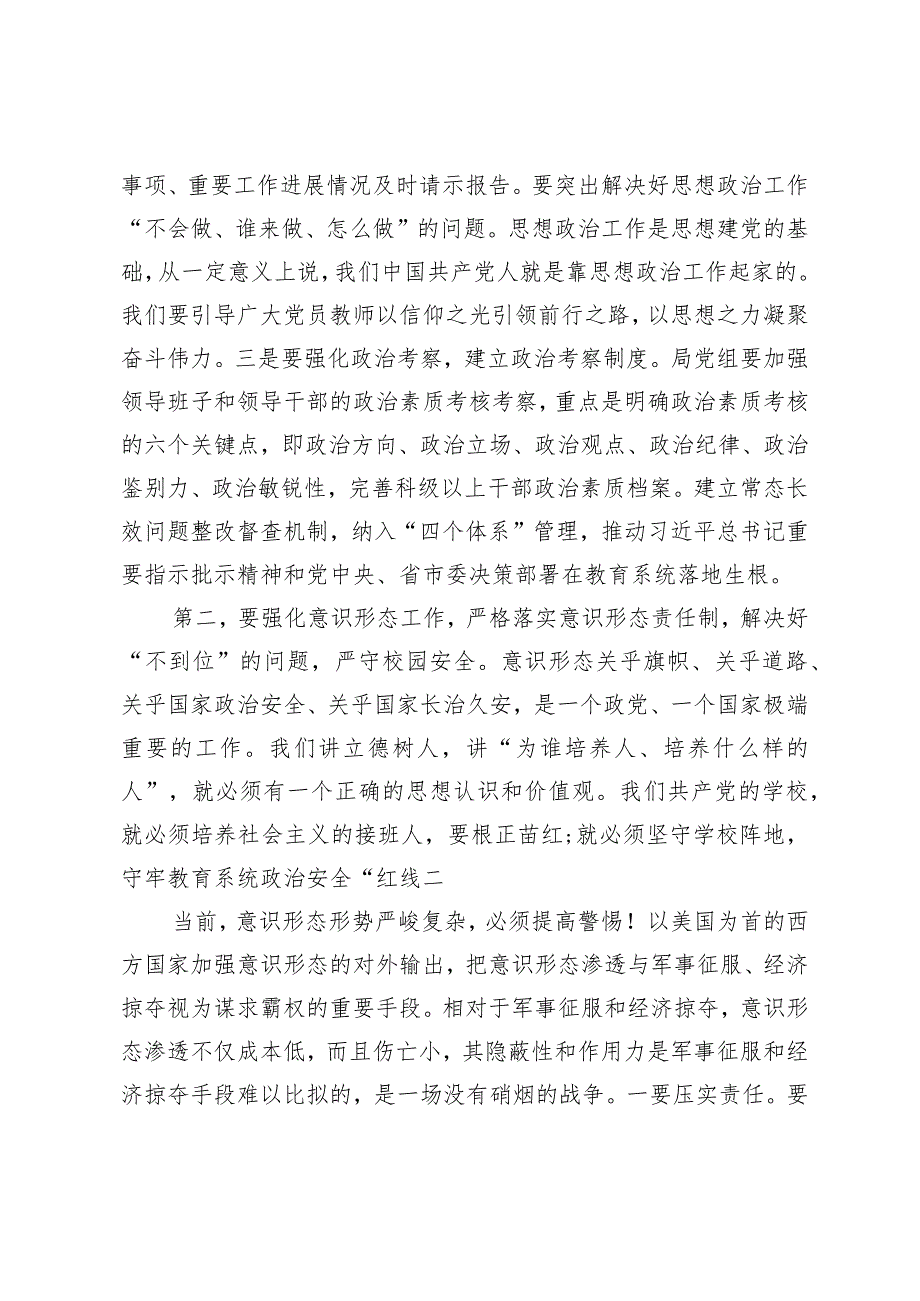 事项、重要工作进展情况及时请示报告。要突出解决好思想政治工作
“不会做、谁来做、怎么做”的问题。思想政治工作是思想建党的基
础，从一定意义上说，我们中国共产党人就是靠思想政治工作起家的。
我们要引导广大党员教师以信仰之光引领前行之路，以思想之力凝聚
奋斗伟力。三是要强化政治考察，建立政治考察制度。局党组要加强
领导班子和领导干部的政治素质考核考察，重点是明确政治素质考核
的六个关键点，即政治方向、政治立场、政治观点、政治纪律、政治
鉴别力、政治敏锐性，完善科级以上干部政治素质档案。建立常态长
效问题整改督查机制，纳入“四个体系”管理，推动习近平总书记重
要指示批示精神和党中央、省市委决策部署在教育系统落地生根。
第二，要强化意识形态工作，严格落实意识形态责任制，解决好
“不到位”的问题，严守校园安全。意识形态关乎旗帜、关乎道路、
关乎国家政治安全、关乎国家长治久安，是一个政党、一个国家极端
重要的工作。我们讲立德树人，讲“为谁培养人、培养什么样的
人”，就必须有一个正确的思想认识和价值观。我们共产党的学校，
就必须培养社会主义的接班人，要根正苗红;就必须坚守学校阵地，
守牢教育系统政治安全“红线二
当前，意识形态形势严峻复杂，必须提高警惕！以美国为首的西
方国家加强意识形态的对外输出，把意识形态渗透与军事征服、经济
掠夺视为谋求霸权的重要手段。相对于军事征服和经济掠夺，意识形
态渗透不仅成本低，而且伤亡小，其隐蔽性和作用力是军事征服和经
济掠夺手段难以比拟的，是一场没有硝烟的战争。一要压实责任。要